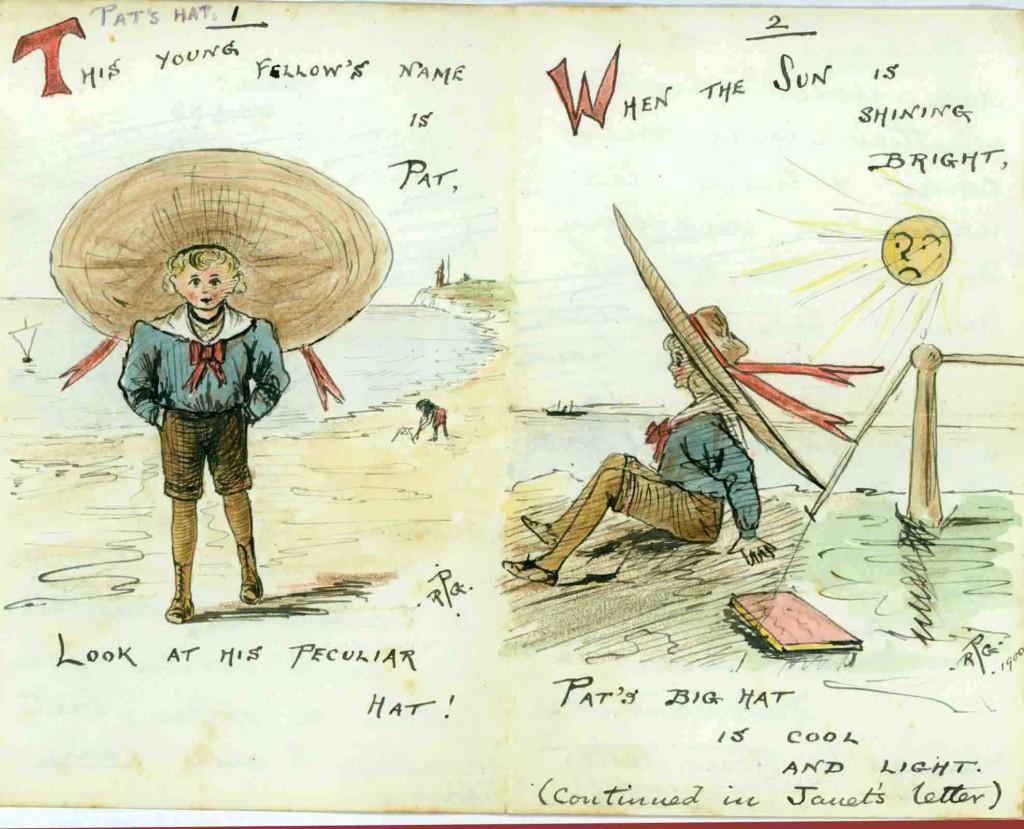 PAT'S HAT. 1
THIS YOUNG FELLOW'S NAME
IS
PAT,
RPG.
LOOK AT HIS PECULIAR
HAT!
2
WHEN THE SUN IS
SHINING
BRIGHT,
RPG. 1900
PAT'S BIG HAT
IS COOL
AND LIGHT.
(Continued in Janet's letter)